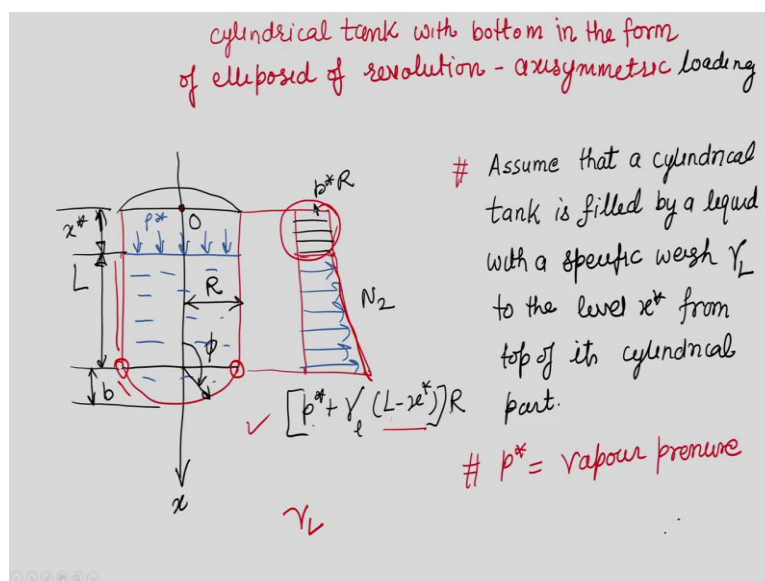 cylindrical tank with bottom in the form
of elliposed of revolution - axisymmetric loading
# Assume that a cylindrical
tank is filled by a liquid
with a specific weigh γL
to the level x* from
top of its cylindrical
part.
# p* = vapour pressure
p*R
x*
p*
O
L
R
N2
ϕ
b
✓ [p* + γl (L-x*)]R
x
γL